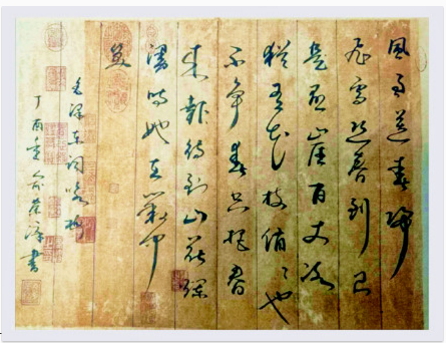 風雨送春歸
飛雪迎春到已
是懸崖百丈冰
猶有花枝俏々也
不争春只把春
来報待到山花爛
漫時她在叢中
笑
毛澤東詞咏梅
丁酉書